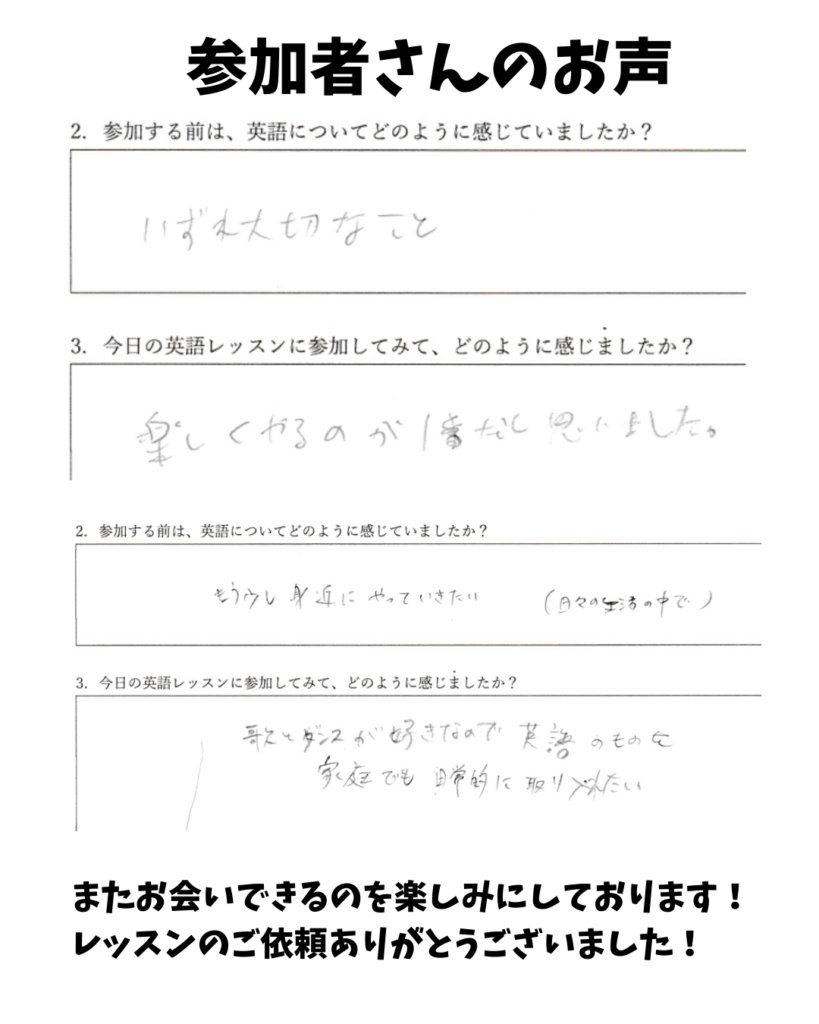 参加者さんのお声
2. 参加する前は、英語についてどのように感じていましたか？
いずれ大切なこと
3. 今日の英語レッスンに参加してみて、どのように感じましたか？
楽しくやるのが1番だと思いました。
2. 参加する前は、英語についてどのように感じていましたか？
もう少し身近にやっていきたい （日々の生活の中で）
3. 今日の英語レッスンに参加してみて、どのように感じましたか？
歌とダンスが好きなので英語のものを
家庭でも日常的に取り入れたい
またお会いできるのを楽しみにしております！
レッスンのご依頼ありがとうございました！